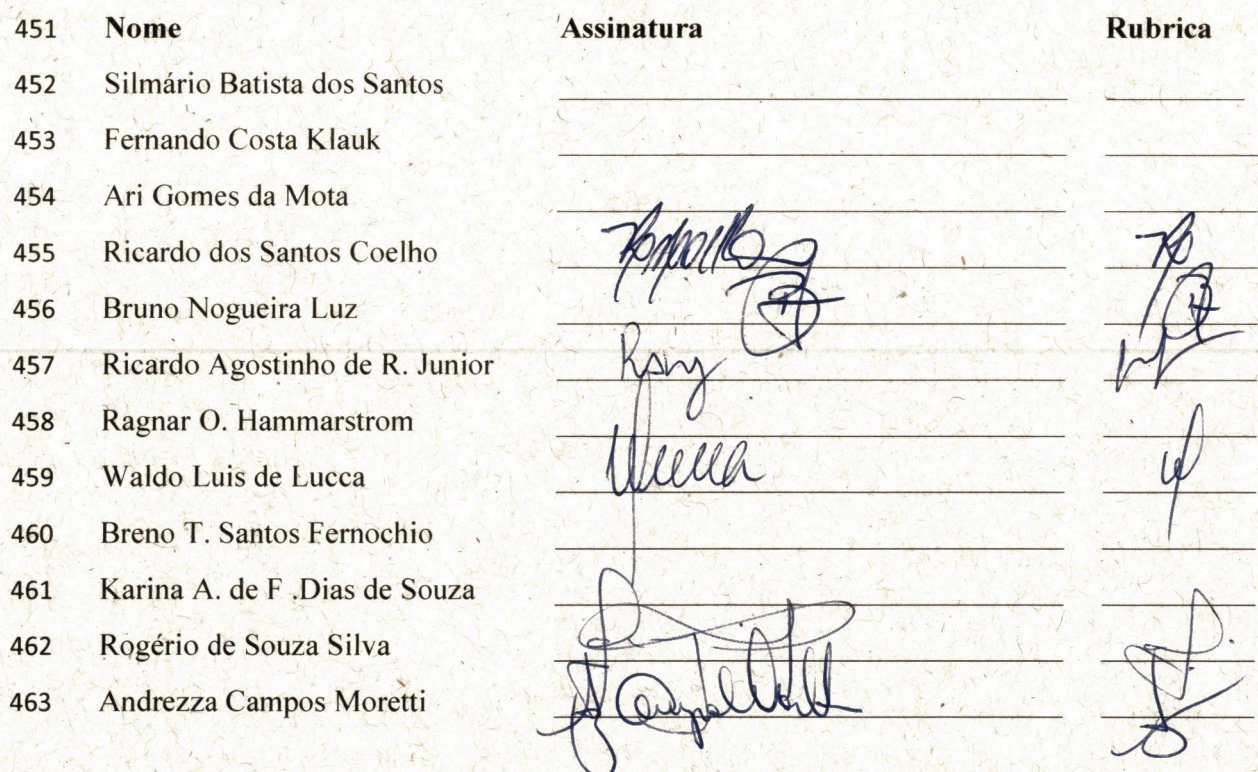 451 Nome Assinatura Rubrica
452 Silmário Batista dos Santos
453 Fernando Costa Klauk
454 Ari Gomes da Mota
455 Ricardo dos Santos Coelho
456 Bruno Nogueira Luz
457 Ricardo Agostinho de R. Junior
458 Ragnar O. Hammarstrom
459 Waldo Luis de Lucca
460 Breno T. Santos Fernochio
461 Karina A. de F .Dias de Souza
462 Rogério de Souza Silva
463 Andrezza Campos Moretti